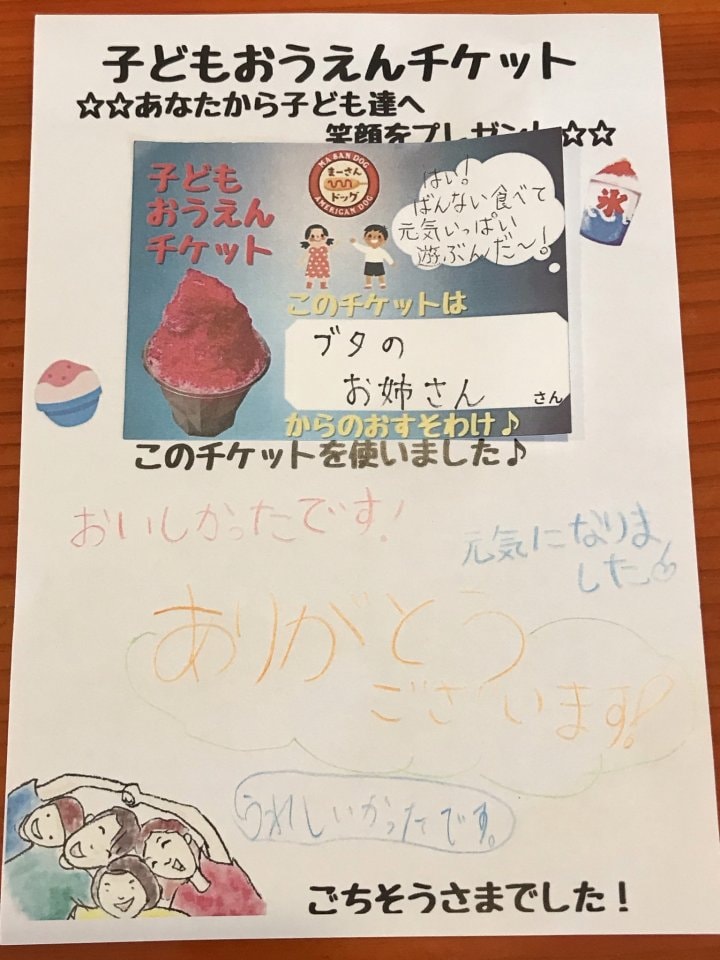 子どもおうえんチケット
☆☆あなたから子ども達へ
笑顔をプレゼント☆☆
子ども
おうえん
チケット
MA-SAN DOG
まーさん
ドッグ
AMERICAN DOG
はい!
ばんない食べて
元気いっぱい
遊ぶんだ〜!
氷
このチケットは
ブタの
お姉さん
さん
からのおすそわけ♪
このチケットを使いました♪
おいしかったです!
元気になりま
した
ありがとう
ございます!
うれしいかったです。
ごちそうさまでした!